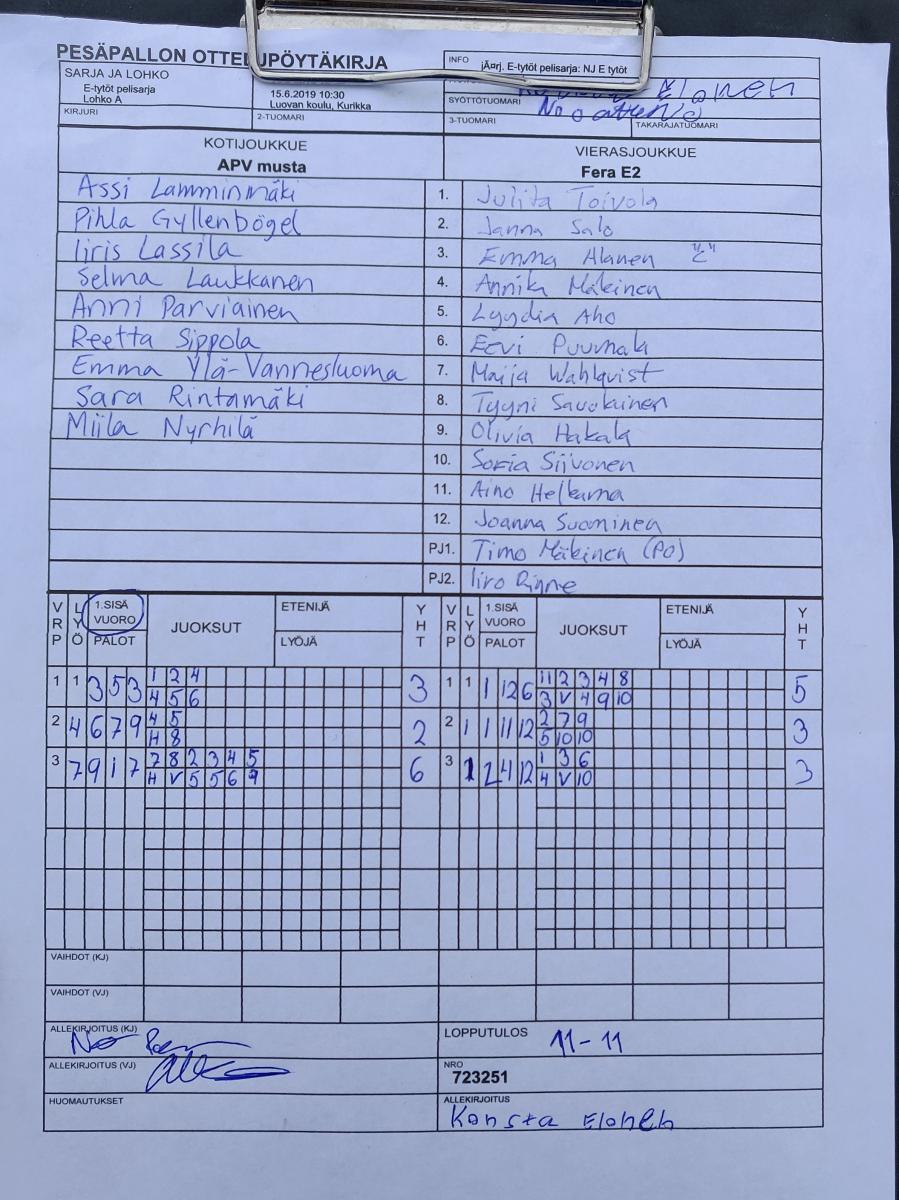 PESÄPALLON OTTELUPÖYTÄKIRJA
INFO jÃ¤rj. E-tytöt pelisarja: NJ E tytöt
SARJA JA LOHKO
E-tytöt pelisarja
Lohko A
15.6.2019 10:30
Luovan koulu, Kurikka
Elonen
SYÖTTÖTUOMARI
KIRJURI 2-TUOMARI 3-TUOMARI TAKARAJATUOMARI
KOTIJOUKKUE VIERASJOUKKUE
APV musta Fera E2
Assi Lamminmäki 1. Julita Toivola
Pihla Gyllenbögel 2. Janna Salo
Iiris Lassila 3. Emma Alanen "C"
Selma Laukkanen 4. Annika Mäkinen
Anni Parviainen 5. Lyydia Aho
Reetta Sippola 6. Eevi Puumala
Emma Ylä-Vannesluoma 7. Maija Wahlqvist
Sara Rintamäki 8. Tyyni Savukainen
Miila Nyrhilä 9. Olivia Hakala
10. Sofia Siivonen
11. Aino Helkama
12. Joanna Suominen
PJ1. Timo Mäkinen (PO)
PJ2. Iiro Rinne
VRP LYÖ 1.SISÄ VUORO PALOT JUOKSUT ETENIJÄ LYÖJÄ YHT VRP LYÖ 1.SISÄ VUORO PALOT JUOKSUT ETENIJÄ LYÖJÄ YHT
1 1 3 5 3 1 2 4 3 1 1 1 12 6 11 2 3 4 8 5
4 5 6 3 V 4 9 10
2 4 6 7 9 4 5 2 2 1 1 11 12 2 7 9 3
H 8 5 10 10
3 7 9 1 7 7 8 2 3 4 5 6 3 1 2 4 12 1 3 6 3
H V 5 5 6 9 4 V 10
VAIHDOT (KJ)
VAIHDOT (VJ)
ALLEKIRJOITUS (KJ) LOPPUTULOS 11-11
ALLEKIRJOITUS (VJ) NRO
723251
HUOMAUTUKSET ALLEKIRJOITUS
Konsta Elonen